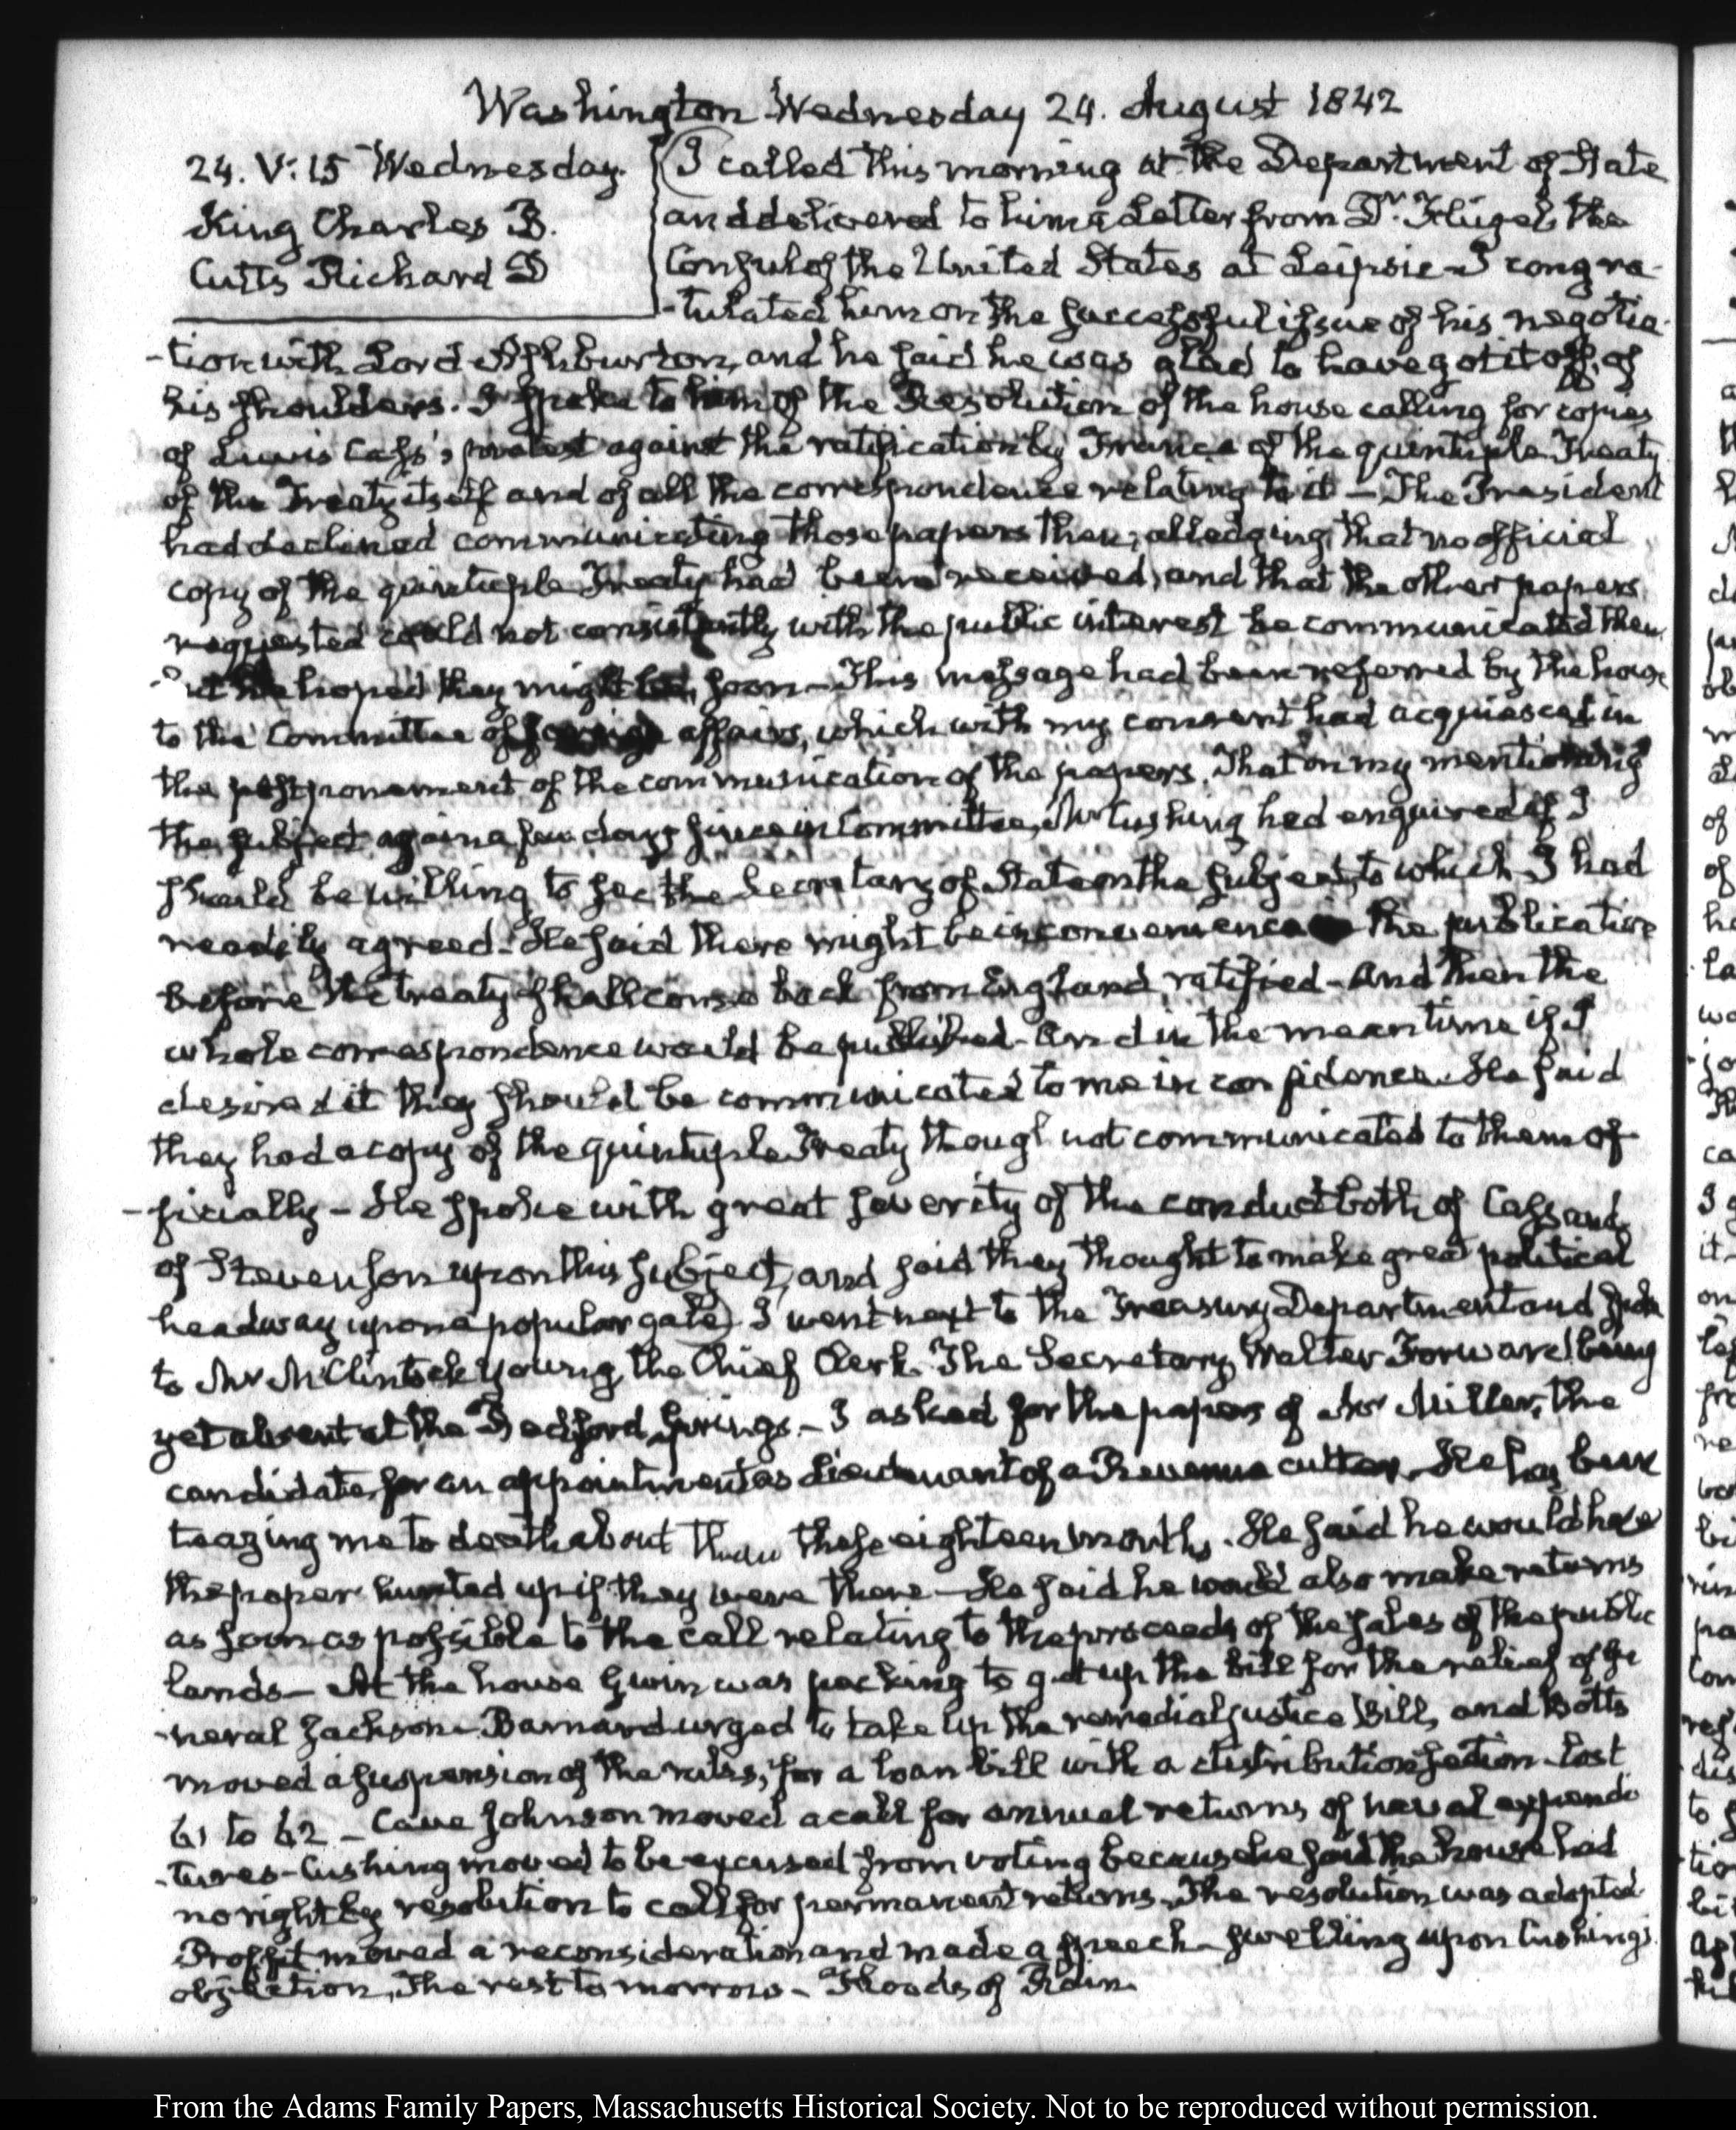 Washington Wednesday 24. August 1842
24. V: 15 Wednesday.
King Charles B.
Cutts Richard D
I called this morning at the Department of State
and delivered to him a Letter from Dr. Flügel, the
Consul of the United States at Leipsic - I congra-
-tulated him on the successful issue of his negotia-
-tion with Lord Ashburton, and he said he was glad to have got it off, of
his shoulders. I spoke to him of the Resolution of the house calling for copies
of Lewis Cass's protest against the ratification by France of the quintuple Treaty
of the Treaty itself and of all the correspondence relating to it - The President
had declined communicating those papers then, alledging that no official
copy of the quintuple Treaty had been received, and that the other papers
requested could not consistently with the public interest be communicated then,
but he hoped they might be, soon - This message had been referred by the house
to the Committee of foreign affairs, which with my consent had acquiesced in
the postponement of the communication of the papers. That on my mentioning
the subject again a few days since in Committee, Mr Cushing had enquired if I
should be willing to see the Secretary of State on the subject, to which I had
readily agreed - He said there might be inconvenience the publication
before the treaty shall come back from England, ratified - And then the
whole correspondence would be published - And in the mean time if I
desired it they should be communicated to me in confidence. He said
they had a copy of the quintuple Treaty though not communicated to them of-
-ficially - He spoke with great severity of the conduct both of Cass and
of Stevenson upon this subject, and said they thought to make great political
headway upon a popular gale) I went next to the Treasury Department and spoke
to Mr McClintock Young, the Chief Clerk. The Secretary, Walter Forward being
yet absent at the Bedford Springs - I asked for the papers of Mr Miller, the
candidate for an appointment as Lieutenant of a Revenue cutter. He has been
teazing me to death about them these eighteen months. He said he would have
the paper hunted up if they were there - He said he would also make returns
as soon as possible to the call relating to the proceeds of the sales of the public
lands - At the house Gwin was packing to get up the bill for the relief of Ge
-neral Jackson - Barnard urged to take up the remedial justice Bill, and Botts
moved a suspension of the rules, for a loan bill with a distribution section - lost
61 to 62 - Cave Johnson moved a call for annual returns of naval expendi
-tures - Cushing moved to be excused from voting because he said the house had
no right by resolution to call for permanent returns. The resolution was adopted
Proffit moved a reconsideration and made a speech - swelling upon Cushing's
objection, The rest to morrow - Floods of Rain.